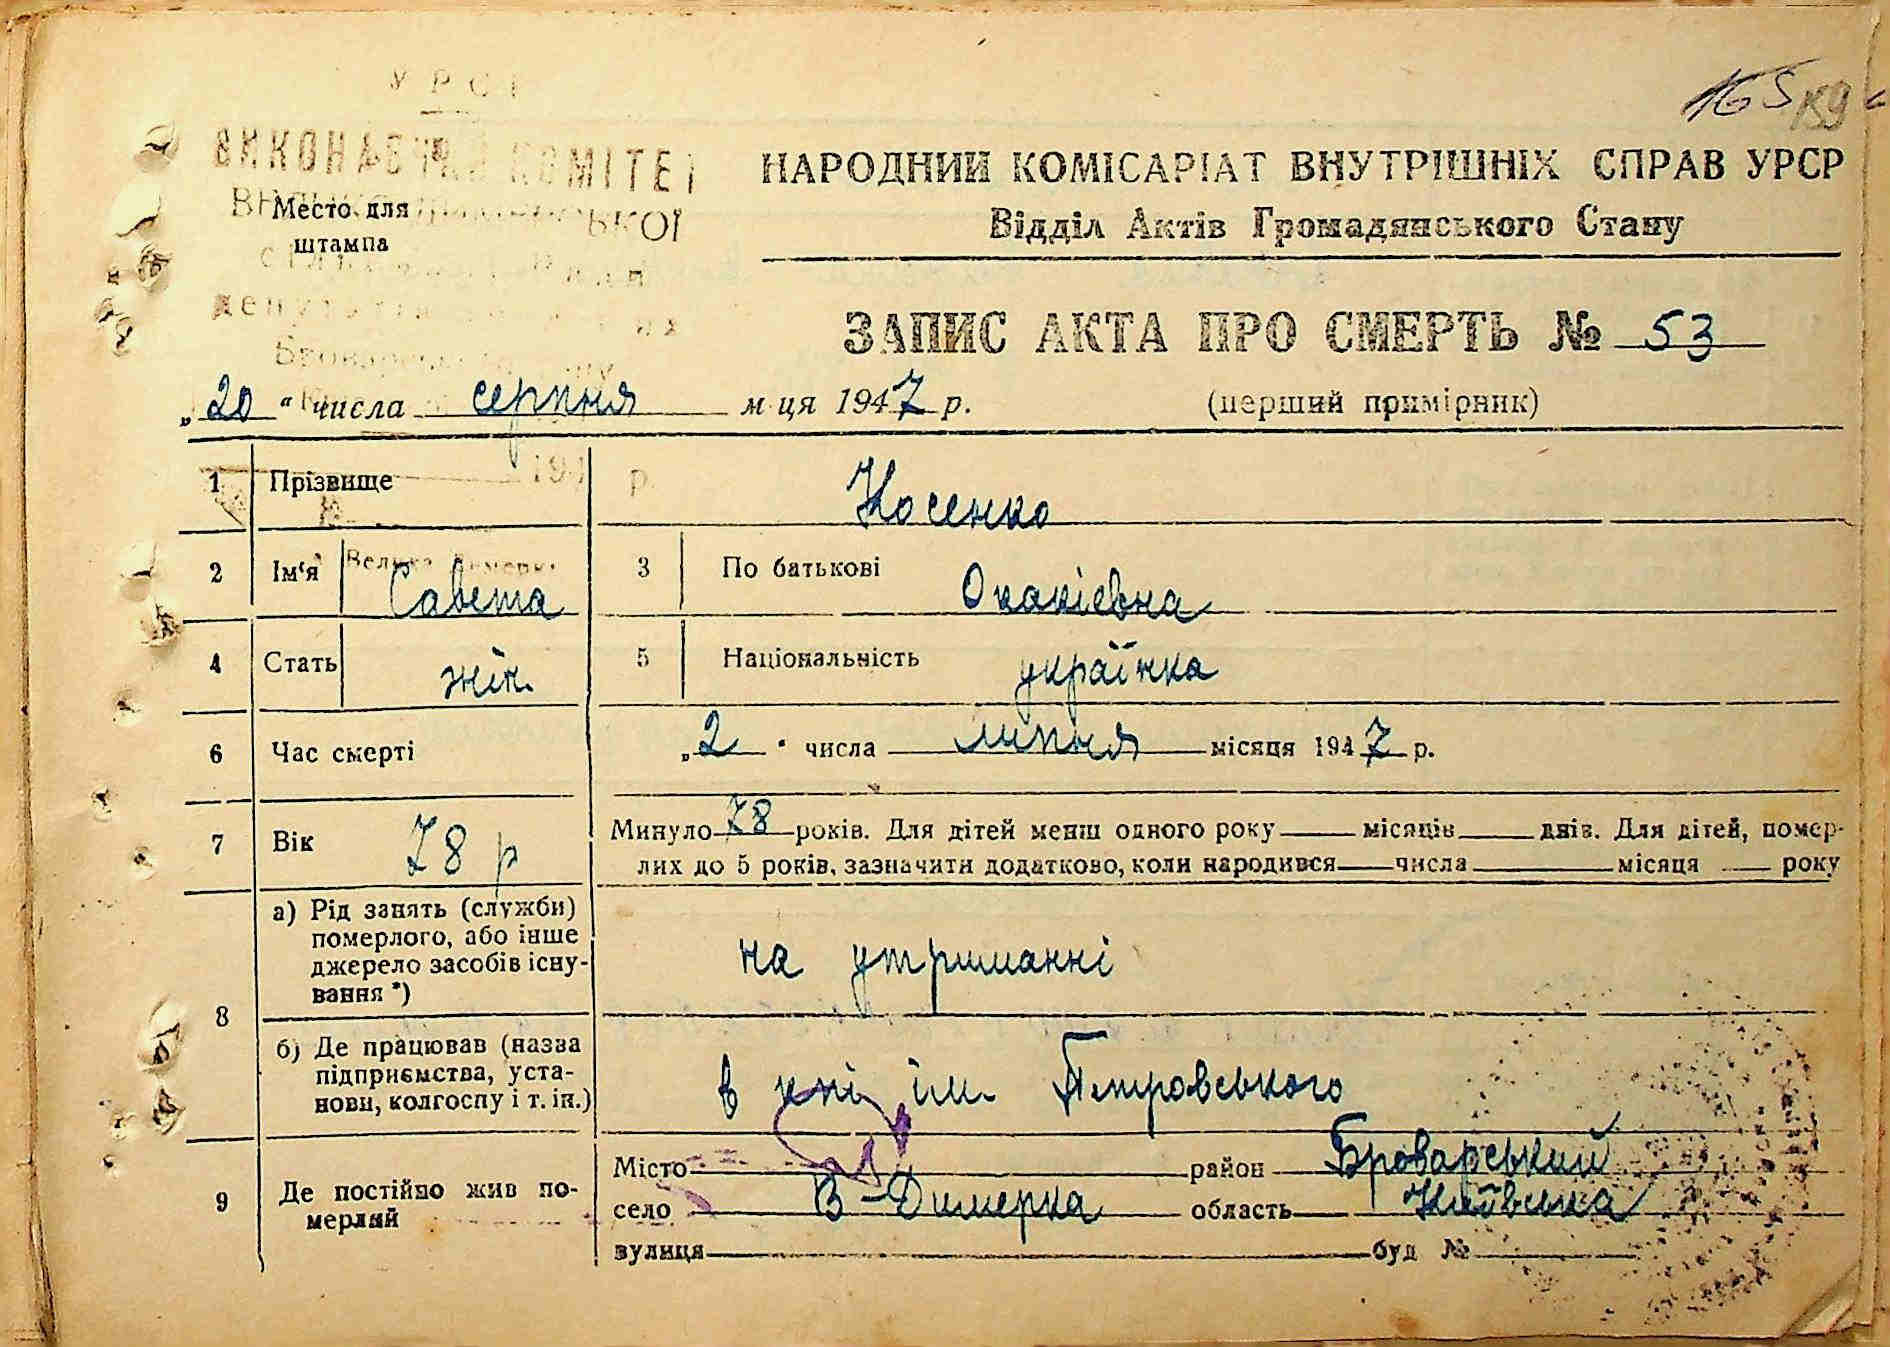 УРСР
ВИКОНАВЧИЙ КОМІТЕТ
Место для
штампа
165 159
НАРОДНИЙ КОМІСАРІАТ ВНУТРІШНІХ СПРАВ УРСР
Відділ Актів Громадянського Стану
ЗАПИС АКТА ПРО СМЕРТЬ № 53
„20“ числа серпня м-ця 1947 р. (перший примірник)
1 Прізвище Косенко
2 Ім'я Савета 3 По батькові Окакіевна
4 Стать жін. 5 Національність українка
6 Час смерті „2“ числа липня місяця 1947 р.
7 Вік 78 р Минуло 78 років. Для дітей менш одного року місяців днів. Для дітей, помер-
лих до 5 років, зазначити додатково, коли народився числа місяця року
8 а) Рід занять (служби)
померлого, або інше
джерело засобів існу-
вання *)
на утриманні
б) Де працював (назва
підприємства, уста-
нови, колгоспу і т. ін.)
в к-пі ім. Петровського
9 Де постійно жив по-
мерлий
Місто район Броварський
село В-Димерка область Київська
вулиця буд №